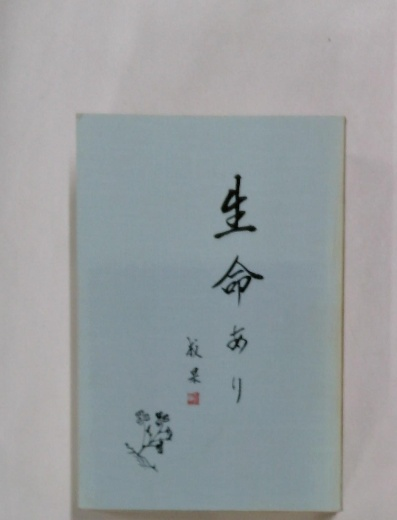 生命あり